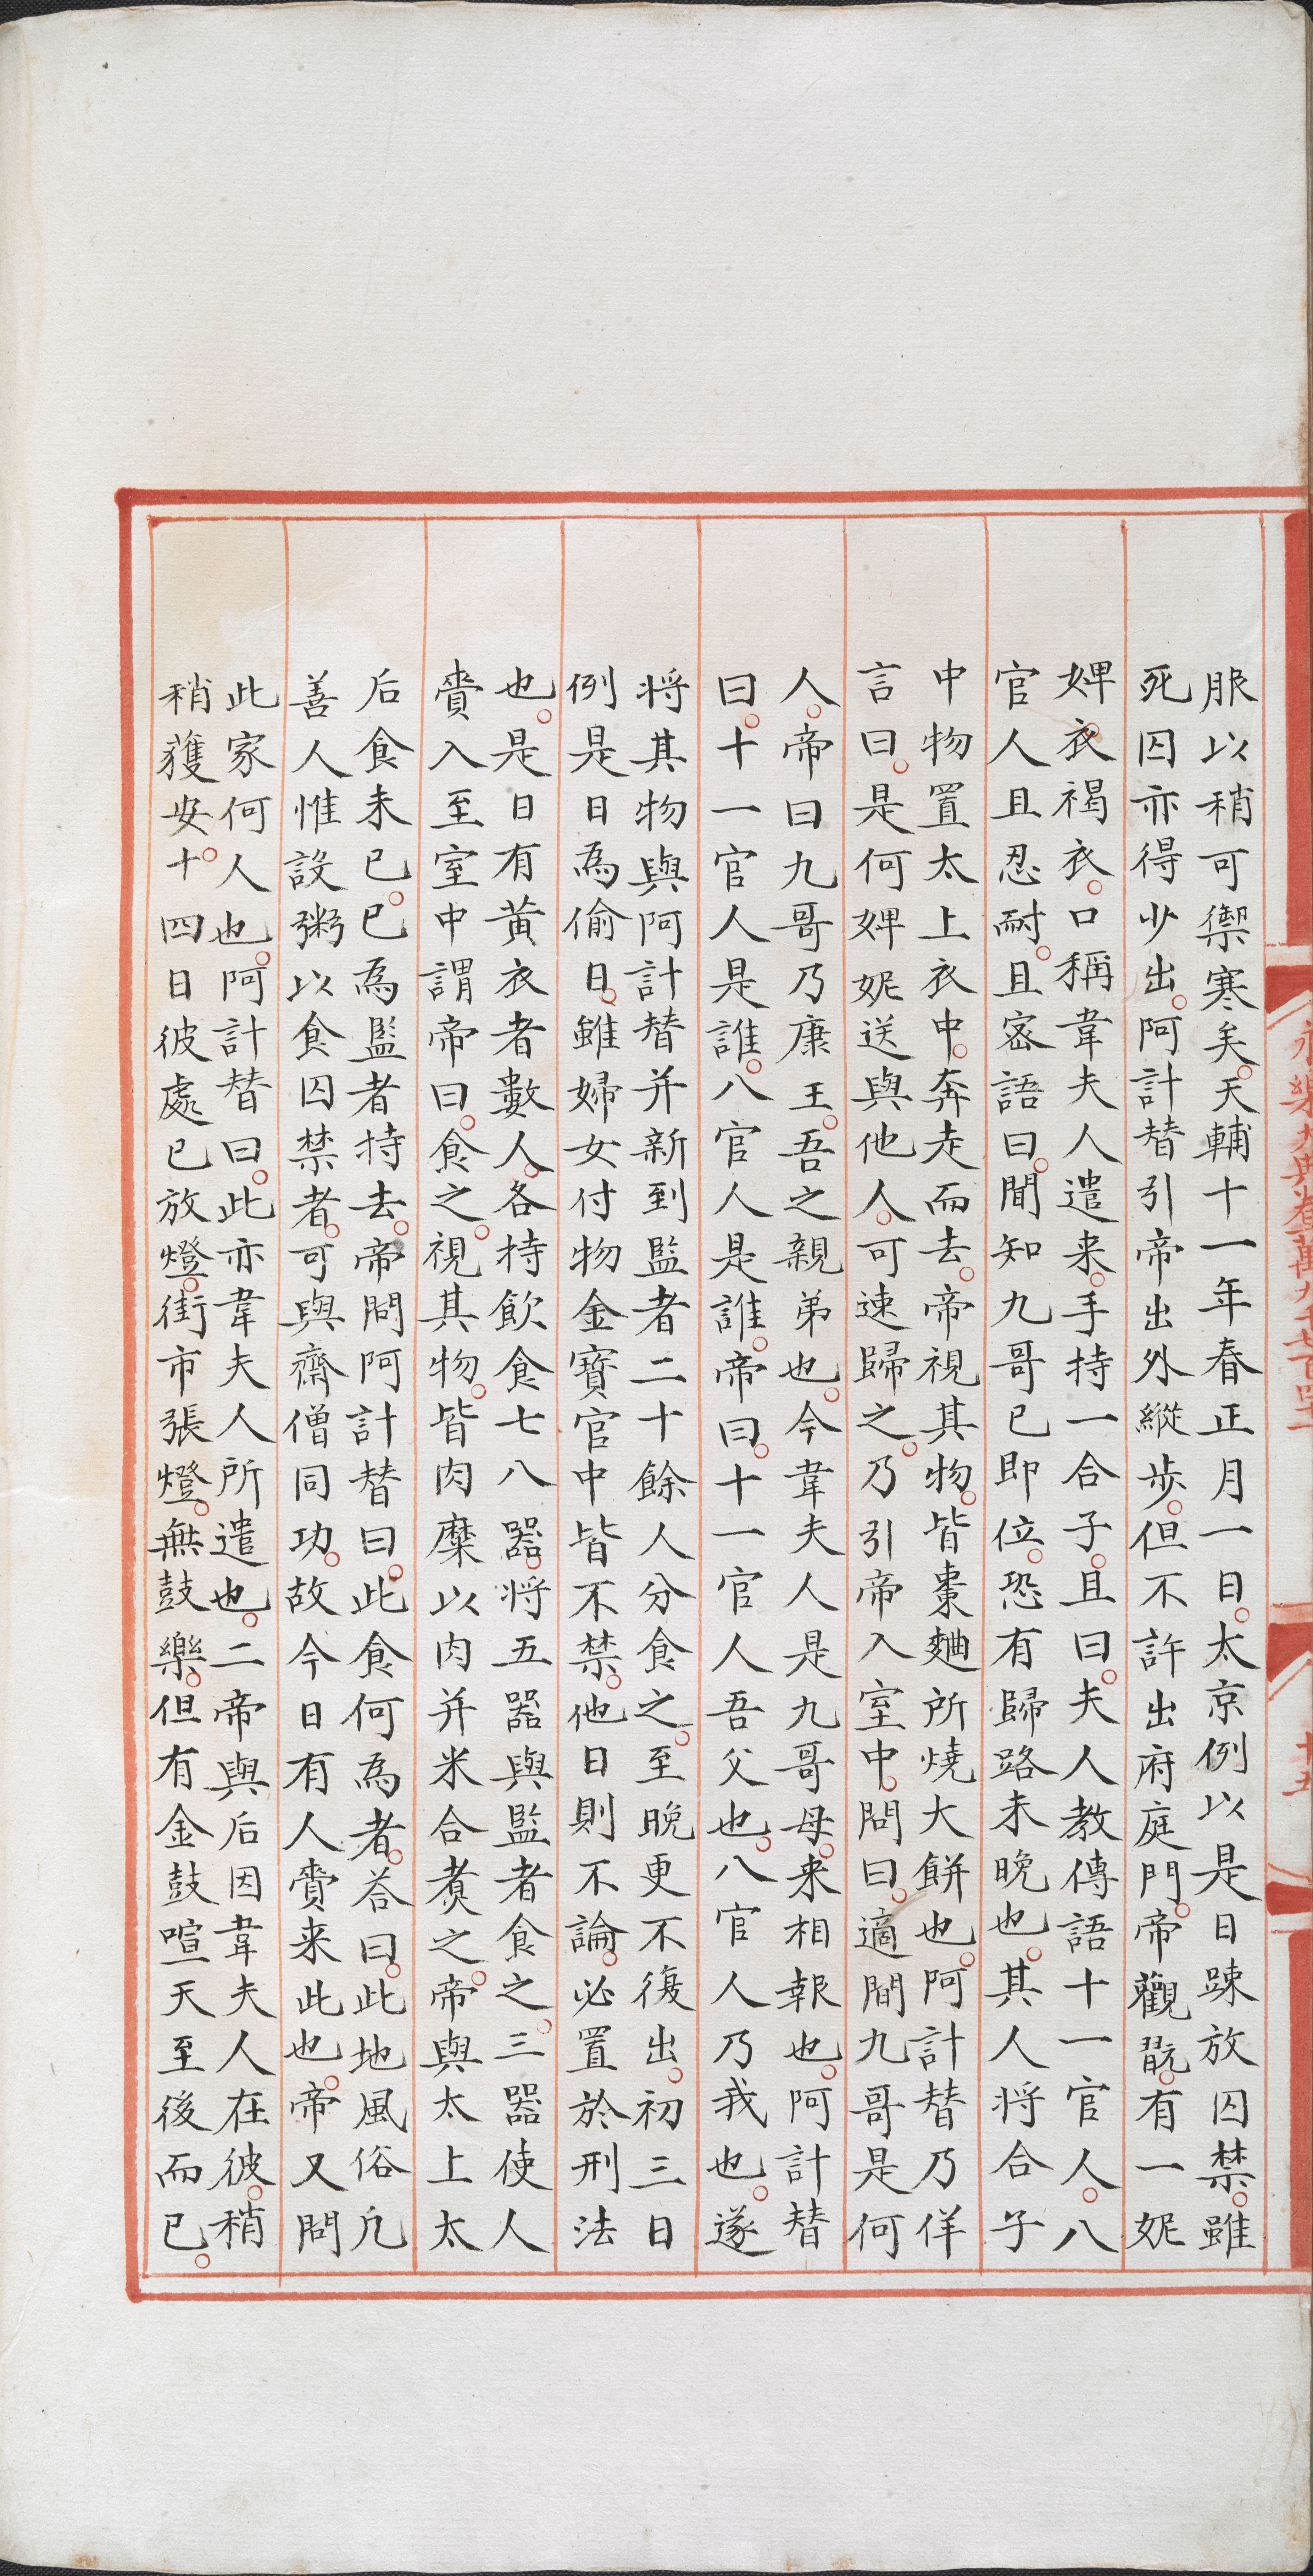 服以稍可禦寒矣。天輔十一年春正月一日。太京例以是日踈放囚禁。雖
死囚亦得少出。阿計替引帝出外縱步。但不許出府庭門。帝觀翫。有一妮
婢衣褐衣。口稱韋夫人遣来。手持一合子。且曰。夫人教傳語十一官人。八
官人且忍耐。且密語曰。聞知九哥已即位。恐有歸路未晩也。其人将合子
中物置太上衣中。奔走而去。帝視其物。皆棗麺所燒大餅也。阿計替乃佯
言曰。是何婢妮送與他人。可速歸之。乃引帝入室中。問曰。適間九哥是何
人。帝曰九哥乃康王。吾之親弟也。今韋夫人是九哥母。来相報也。阿計替
曰。十一官人是誰。八官人是誰。帝曰。十一官人吾父也。八官人乃我也。遂
将其物與阿計替并新到監者二十餘人分食之。至晚更不復出。初三日
例是日為偷日。雖婦女付物金寶官中皆不禁。他日則不論。必置於刑法
也。是日有黄衣者數人。各持飲食七八器。将五器與監者食之。三器使人
賷入至室中謂帝曰。食之。視其物。皆肉糜以肉并米合煑之。帝與太上太
后食未已。已為監者持去。帝問阿計替曰。此食何為者。荅曰。此地風俗凡
善人惟設粥以食囚禁者。可與齋僧同功。故今日有人賷来此也。帝又問
此家何人也。阿計替曰。此亦韋夫人所遣也。二帝與后因韋夫人在彼。稍
稍獲安。十四日彼處已放燈。街市張燈。無鼓樂。但有金鼓喧天至後而已。